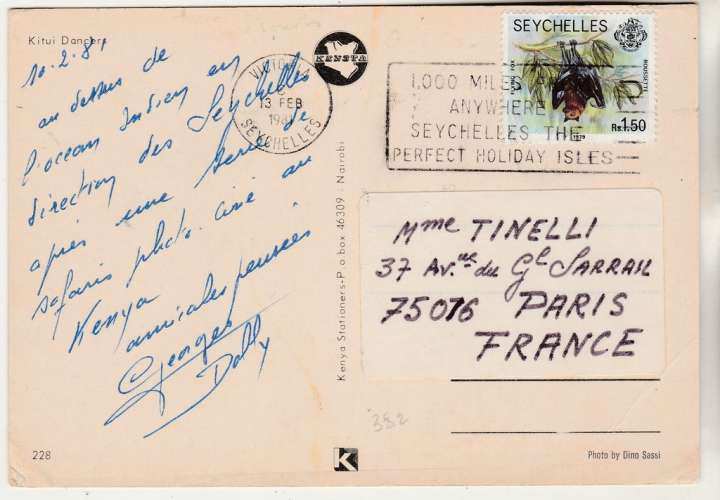 Kitui Dancers
10.2.81
au dessus de
l'océan Indien en
direction des Seychelles
après une série de
safaris photo. ciné au
Kenya
amicales pensées
Georges
Dolly
228
KENSTA
Kenya Stationers-P o box 46309 : Nairobi
K
VICTORIA
13 FEB
1981
SEYCHELLES
1,000 MILES
ANYWHERE
SEYCHELLES THE
PERFECT HOLIDAY ISLES
SEYCHELLES
ROUSSETTE
Rs.1.50
1979
Mme TINELLI
37 Av.ue du Gl SARRAIL
75016 PARIS
FRANCE
382
Photo by Dino Sassi